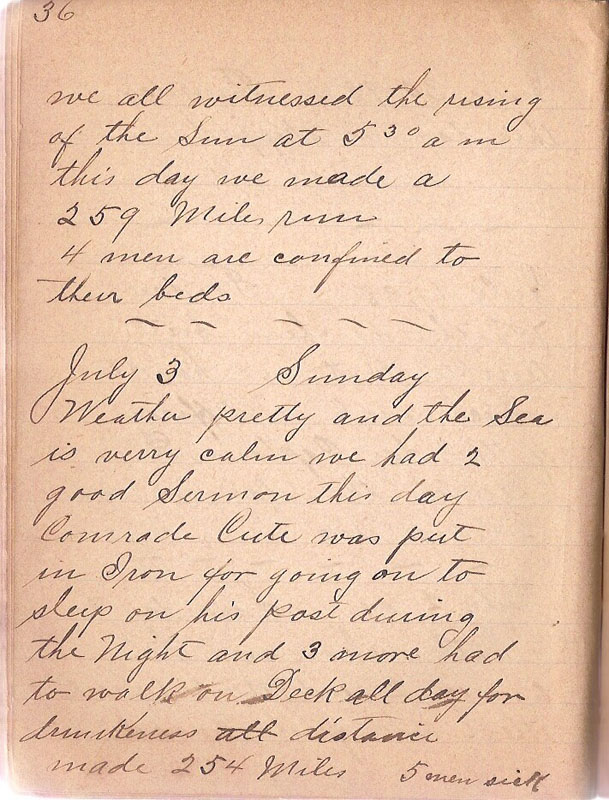 36
we all witnessed the rising
of the Sun at 5 30 a m
this day we made a
259 Miles run
4 men are confined to
their beds
July 3 Sunday
Weather pretty and the Sea
is verry calm we had 2
good Sermon this day
Comrade Cute was put
in Iron for going on to
sleep on his post during
the Night and 3 more had
to walk on Deck all day for
drunkeness all distance
made 254 Miles 5 men sick